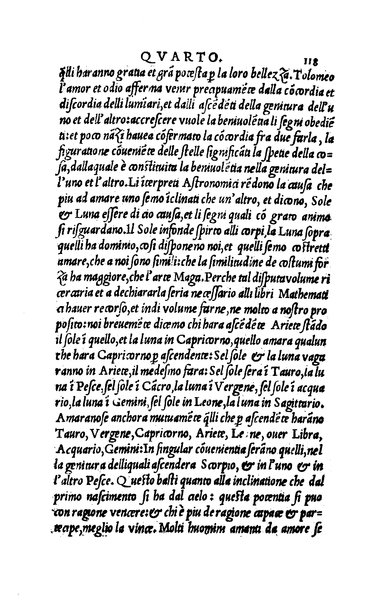 QVARTO. 118
q̃lli haranno gratia et grã potẽsta ꝑ la loro bellezza. Tolomeo
l'amor et odio afferma venir precapuamẽte dalla cõcordia et
discordia delli lumiari, et dalli ascẽdẽti della genitura dell'u
no et dell'altro: accrescere vuole la beniuolẽtia li segni obediẽ
ti: et poco nãzi hauea cõfermato la cõcordia fra due farla, la
figuratione cõueniẽte delle stelle significãti la spetie della co
sa, dallaquale è cõstituita la beniuolẽtia nella genitura del=
l'uno et l'altro. Li ĩterpreti Astronomici rẽdono la causa che
piu ad amare uno semo ĩclinati che un'altro, et dicono, Sole
& Luna essere di cio causa, et li segni quali cõ grato animo
si risguardano. Il Sole infonde spirto alli corpi, la Luna sopra
quelli ha dominio, cosi disponeno noi, et quelli semo costretti
amare, che a noi sono simili: che la similitudine de costumi for
za ha maggiore, che l'arte Maga. Perche tal disputa volume ri
cercaria et a dechiararla seria necessario alli libri Mathemati
ci hauer recorso, et indi volume farne, ne molto a nostro pro
posito: noi breuemẽte dicemo chi hara ascẽdẽte Ariete stãdo
il sole ĩ quello, et la luna in Capricorno, quello amara qualun
che hara Capricorno ꝑ ascendente: Sel sole & la luna vaga
ranno in Ariete, il medesmo fara: Sel sole sera ĩ Tauro, la lu
na ĩ Pesce, sel sole ĩ Cãcro, la luna ĩ Vergene, sel sole ĩ acqua
rio, la luna ĩ Gemini, sel sole in Leone, la luna in Sagittario.
Amaranose anchora mutuamẽte q̃lli che ꝑ ascẽdẽte harãno
Tauro, Vergene, Capricorno, Ariete, Leone, ouer Libra,
Acquario, Gemini: In singular cõuenientia serãno quelli, nel
la genitura delliquali ascendera Scorpio, & in l'uno et in
l'altro Pesce. Questo basti quanto alla inclinatione che dal
primo nascimento si ha dal cielo: questa potentia si puo
con ragione vencere: et chi è piu de ragione capace & par=
tecape, meglio la vince. Molti huomini amanti da amore se